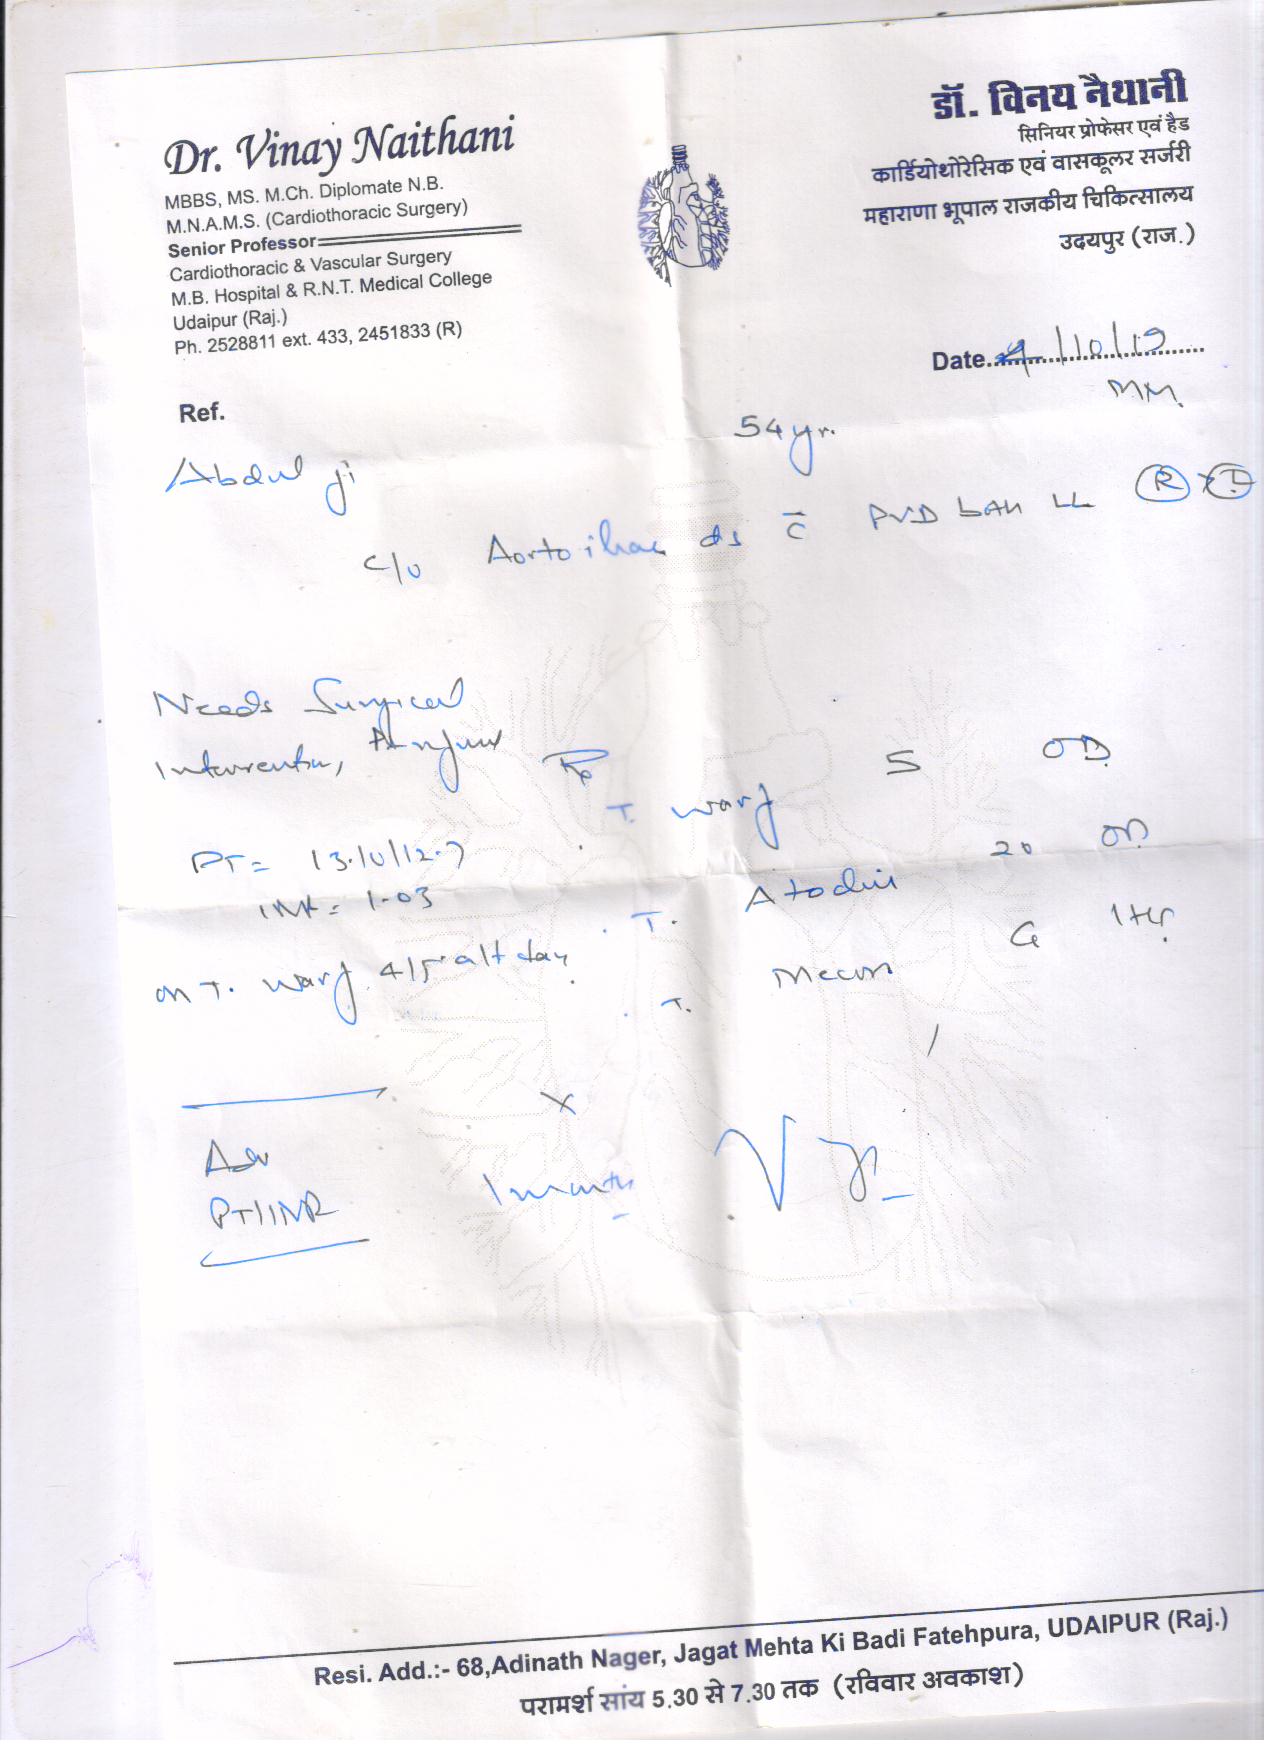 Dr. Vinay Naithani
MBBS, MS. M.Ch. Diplomate N.B.
M.N.A.M.S. (Cardiothoracic Surgery)
Senior Professor
Cardiothoracic & Vascular Surgery
M.B. Hospital & R.N.T. Medical College
Udaipur (Raj.)
Ph. 2528811 ext. 433, 2451833 (R)
डॉ. विनय नैथानी
सिनियर प्रोफेसर एवं हैड
कार्डियोथोरेसिक एवं वासकूलर सर्जरी
महाराणा भूपाल राजकीय चिकित्सालय
उदयपुर (राज.)
Date. 4/10/19
MM.
Ref.
Abdul ji 54 yr.
c/o Aortoiliac ds c̄ PVD LL R
Needs Surgical
Intervention,
Rx
T. Warf 5 OD
PT= 13.10/12.7
INR= 1.03
T. 20 OD
on T. Warf 4/5 alt day
T. G
x
1 month
Adv
PT/INR
Resi. Add.:- 68,Adinath Nager, Jagat Mehta Ki Badi Fatehpura, UDAIPUR (Raj.)
परामर्श सांय 5.30 से 7.30 तक (रविवार अवकाश)